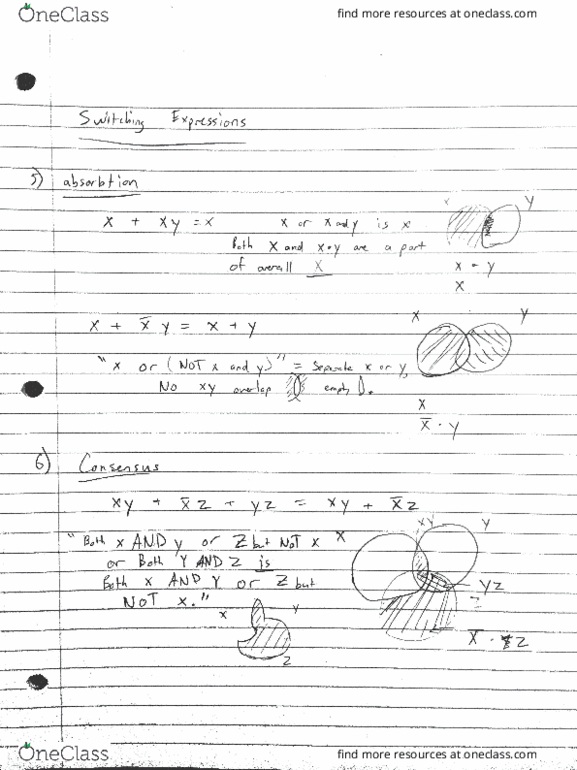 OneClass
find more resources at oneclass.com
Switching Expressions
5) absorbtion
x + xy = x
x or x and y is x
Both x and x•y are a part
of overall X
x
y
x • y
x
x + x̅ y = x + y
"x or (NOT x and y)" = separate x or y,
No xy overlap empty
x
y
x
x̅ • y
6) Consensus
xy + x̅z + yz = xy + x̅z
"Both x AND y or Z but NOT x
or Both Y AND Z is
Both x AND Y or Z but
NOT x."
X
xy
y
yz
x̅ • z
x
y
z
OneClass
find more resources at oneclass.com